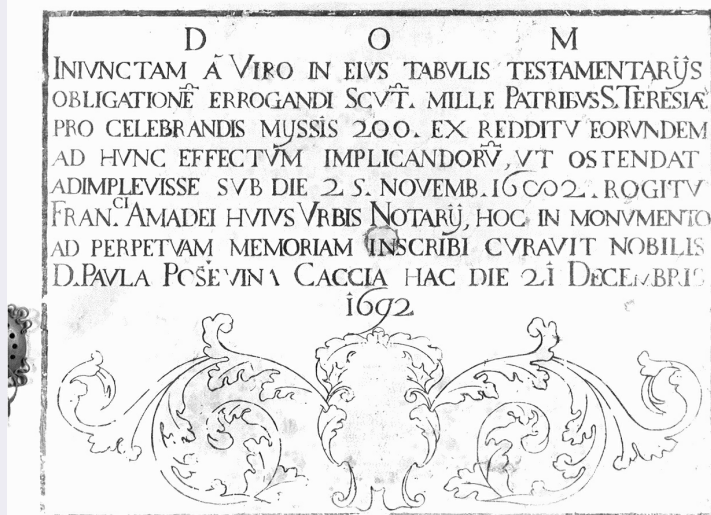 D O M
INIVNCTAM Ã VIRO IN EIVS TABVLIS TESTAMENTARIJS
OBLIGATIONẼ ERROGANDI SCVT̃. MILLE PATRIBVS S. TERESIÆ
PRO CELEBRANDIS MISSIS 200. EX REDDITV EORVNDEM
AD HVNC EFFECTVM IMPLICANDORṼ, VT OSTENDAT
ADIMPLEVISSE SVB DIE 25. NOVEMB. 1692. ROGITV
FRAN.CI AMADEI HVIVS VRBIS NOTARIJ, HOC IN MONVMENTO
AD PERPETVAM MEMORIAM INSCRIBI CVRAVIT NOBILIS
D. PAVLA POSSEVINA CACCIA HAC DIE 21 DECEMBRIS
1692